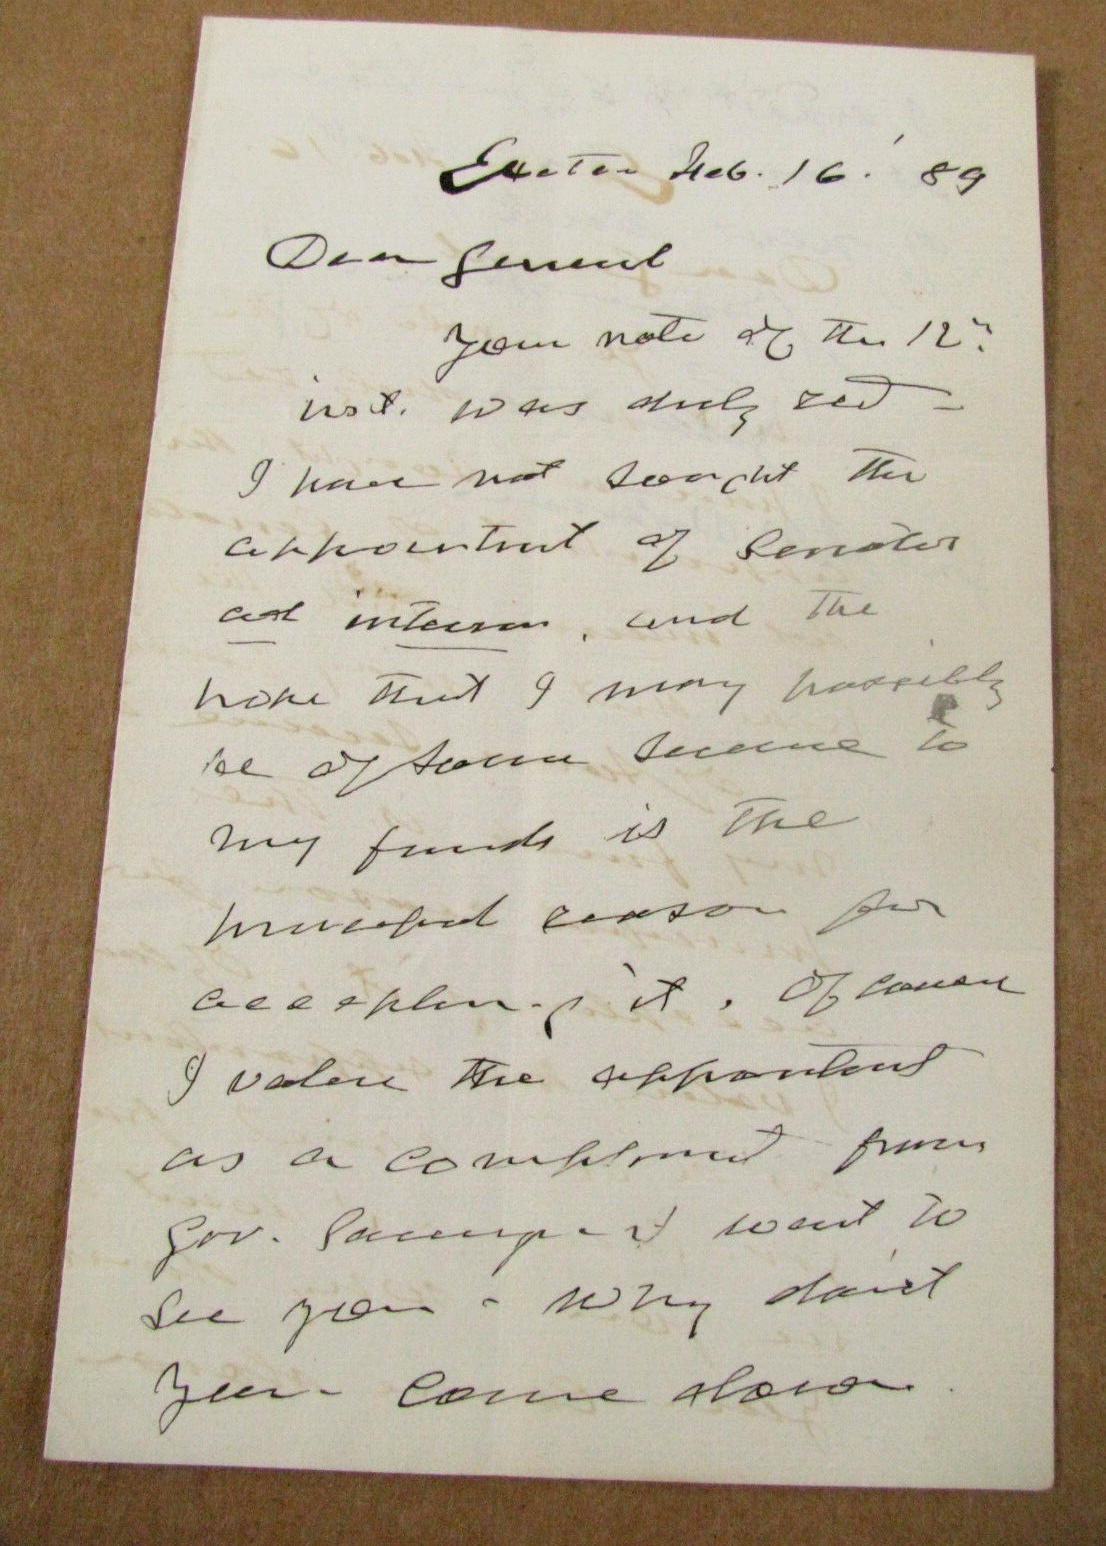 Exeter Feb. 16. '89
Dear General
Your note of the 12"
inst. was duly recd -
I have not sought the
appointment of Senator
ad interim, and the
hope that I may possibly
be of some service to
my friends is the
principal reason for
accepting it. Of course
I value the appointment
as a compliment from
Gov. Sawyer - I want to
see you - Why don't
you - come down.